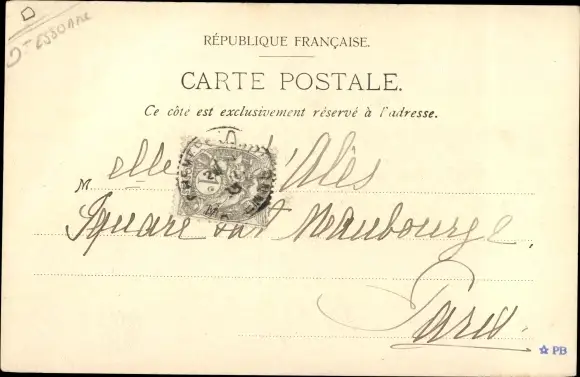 Dt ESSONNE
RÉPUBLIQUE FRANÇAISE.
CARTE POSTALE.
Ce côté est exclusivement réservé à l'adresse.
Melle d'Alès
Square Maubourge,
Paris.
PB